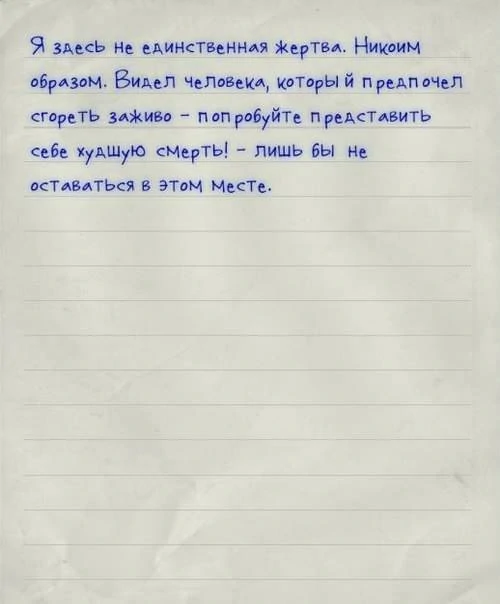 Я здесь не единственная жертва. Никоим
образом. Видел человека, который предпочел
сгореть заживо – попробуйте представить
себе худшую смерть! – лишь бы не
оставаться в этом месте.